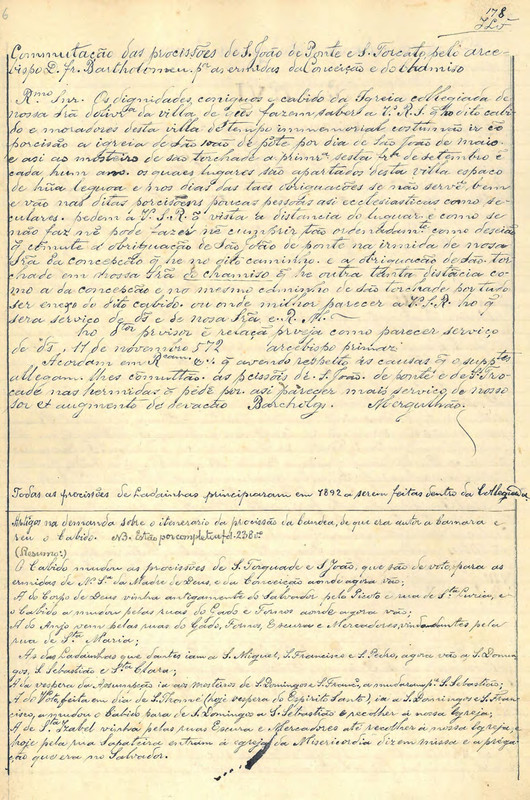 6
178
Commutação das procissões de S. João de Ponte e S. Torcato, pelo arce-
bispo D. Fr. Bartholomeu, pª as ermidas da Conceição e do Chamiso
Rmo Snr. Os dignidades, conigos e cabido da Igreia collegiada de
nossa Srã doulivrª da villa de gũes fazem saber a V. R. S. q ho dito cabi-
do e moradores desta villa de tempo immemorial costumão ir cõ
porcisão a igreia de São João, de põte por dia de São João de maio
e asi ao mosteiro de são torchade a primrª sesta frª de setembro e
cada hum ano. os quaes lugares são apartados desta villa espaço
de hũa legoa e nos dias das taes obrigacões se não servẽ bem
e vão nas ditas porcisões poucas pesoas asi ecclesiasticas como se-
culares. pedem á V. S. R. ã vista a distancia do luguar e como se
não faz nẽ pode fazer nẽ cumbrir tão ordenhadamte como deseião
q comute a obriguação de São João de ponte na irmida de nosa
Srã da concepção q he no dito caminho. e a obriguação de São tor-
chade em nossa Srã do chamiso q he outra tanta distãcia co-
mo a da concepção e no mesmo caminho de são torchade por tudo
ser ençeo do dito cabido. ou onde milhor parecer a V. S. R. ho q
sera serviço de ds e de nosa Srã e. R. M.
ho dtor prvisor e relaçã prveja como parecer serviço
de ds, 17 de novembro 572 arcebispo primaz
Acordam em Rcam. &ª. q avendo respeito ás causas q o supptes
allegam. lhes comuttão. as pcissões de S. João. de ponte e de S. Tro-
cade nas hermidas q pedẽ por. asi pareçer mais serviço de nosso
sor et augmento de devacão Bartholg. Mergulhão.
Todas as procissões de Ladainhas principiaram em 1892 a serem feitas dentro da Collegiada
Artigos na demanda sobre o itenerario da procissão da bandea, de que era autor a camara e
reu o Cabido. NB. Estão por completo a fol. 238 vº
(Resumo)
O Cabido mudou as procissões de S. Torquade e S. João, que são de voto, para as
ermidas de Nª Srª da Madre de Deus, e da Conceição aonde agora vão;
A do Corpo de Deus vinha antigamente do Salvador pelo Pisote á rua de Stª Luzia, e
o Cabido a mudou pelas ruas do Gado e Fornos aonde agora vão;
A do Anjo vem pelas ruas do Gado, Fornos, Escura e Mercadores, vindo dantes pela
rua de Stª Maria;
As das Ladainhas que dantes iam a S. Miguel, S. Francisco e S. Pedro, agora vão a S. Domin-
gos, S. Sebastião e Stª Clara;
A da vespera da Assumpção ia aos mosteiros de S. Domingos e S. Francº, a mudaram pª S. Sebastião;
A do Voto, feita em dia de S. Thomé (hoje vespera do Espirito Santo), ia a S. Domingos e S. Fran-
cisco, a mudou o Cabido para de S. Domingos a S. Sebastião e recolher á nossa Igreja;
A de Stª Izabel vinha pelas ruas Escura e Mercadores até recolher á nossa Igreja, e
hoje pela rua Sapateira entram á egreja da Misericordia dizem missa e a préga-
ção que era no Salvador.